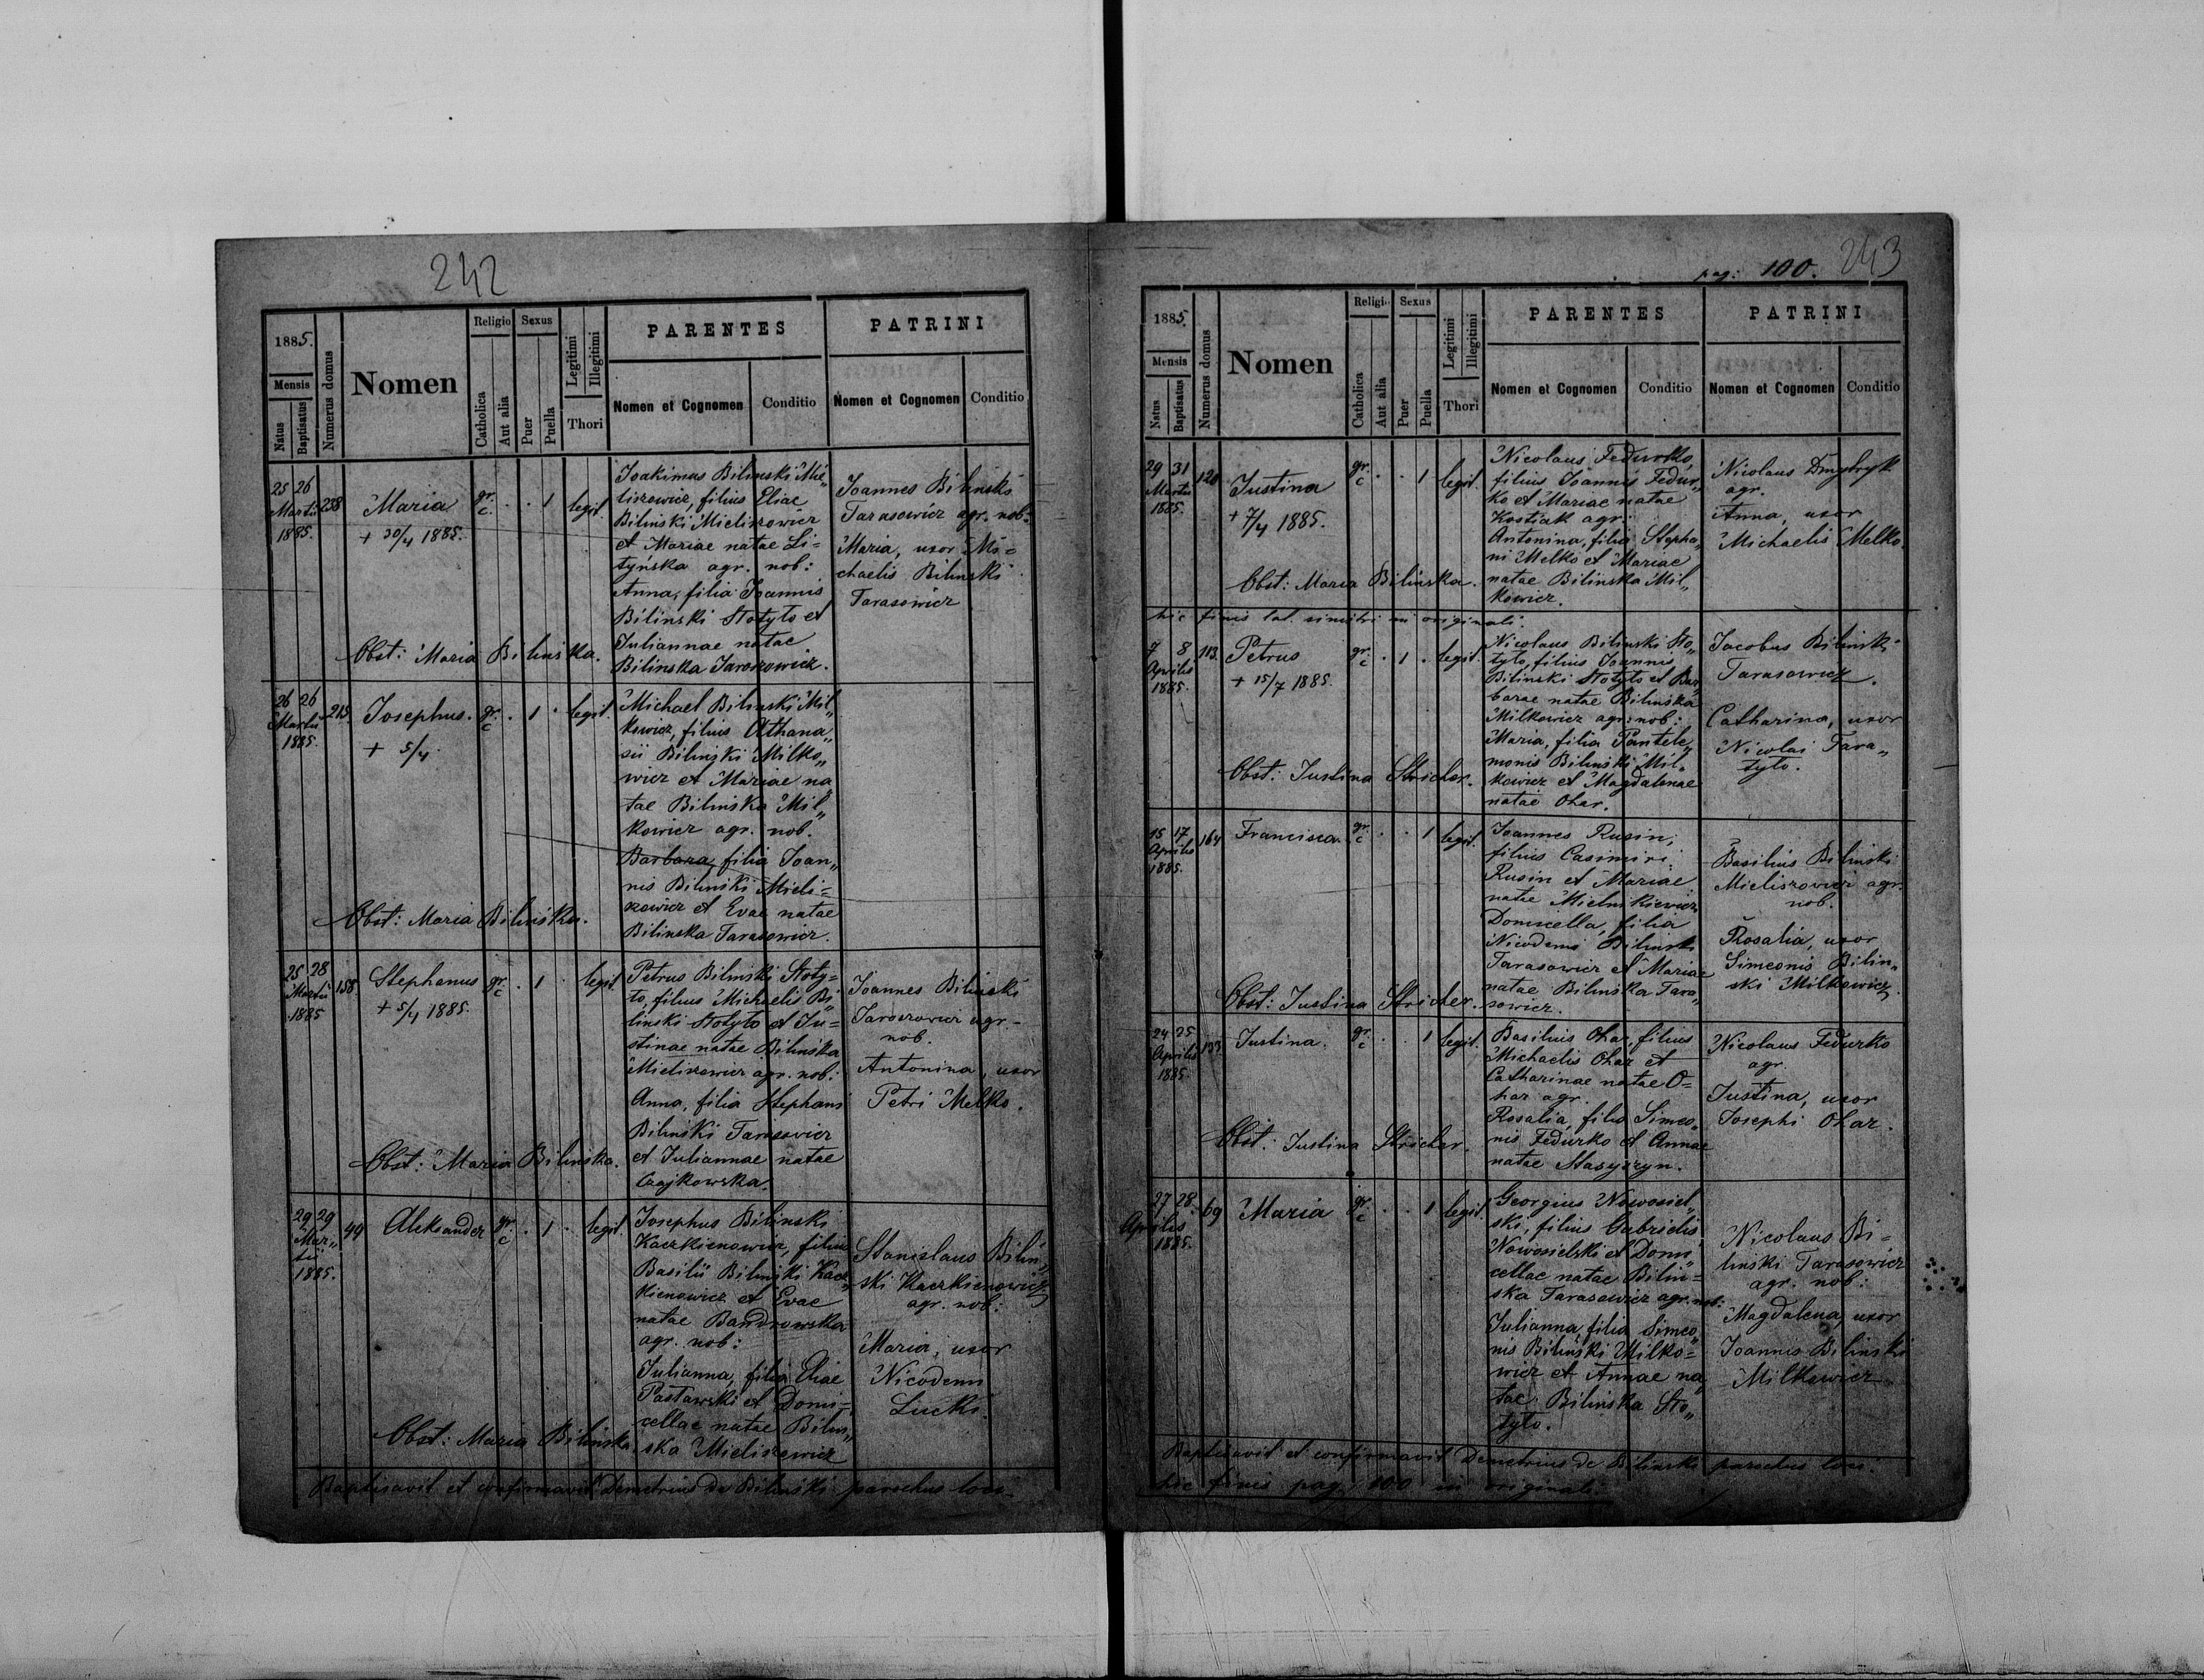 242
1885.
Mensis
Natus
Baptisatus
Numerus domus
Nomen
Religio
Catholica
Aut alia
Sexus
Puer
Puella
Legitimi
Illegitimi
Thori
PARENTES
Nomen et Cognomen
Conditio
PATRINI
Nomen et Cognomen
Conditio
25 26
Martii
1885.
238
Maria
+ 30/4 1885.
gr.
c.
. . 1 legit.
Joakimus Bilinski Mie„
liszewicz, filius Eliae
Bilinski Mieliszowicz
et Mariae natae Li=
tyńska agr. nob:
Anna, filia Joannis
Bilinski Stotyto et
Juliannae natae
Bilinska Jaroszowicz.
Joannes Bilinski
Tarasowicz agr. nob:
Maria, uxor Mi=
chaelis Bilinski
Tarasowicz
Obst: Maria Bilinska.
26 26
Martii
1885.
215
Josephus.
+ 5/4.
gr.
c
. 1 . legit.
Michael Bilinski Mil„
kowicz, filius Athana„
sii Bilinski Milko„
wicz et Mariae na„
tae Bilinska Mil„
kowicz agr. nob.
Barbara, filia Joan„
nis Bilinski Mieli=
szewicz et Evae natae
Bilinska Tarasowicz.
Obst: Maria Bilińska.
25 28
Martii
1885
158
Stephanus
+ 5/4 1885.
gr.
c
. 1 . legit.
Petrus Bilinski Stoty=
to, filius Michaelis Bi„
linski Stotyto et Ju=
stinae natae Bilinska
Mieliszewicz agr. nob:
Anna, filia Stephani
Bilinski Tarasowicz
et Juliannae natae
Czajkowska.
Joannes Bilinski
Jaroszowicz agr.
nob.
Antonina, uxor
Petri Melko.
Obst: Maria Bilinska.
29 29
Mar„
tii
1885.
49
Aleksander
gr.
c
. 1 . legit.
Josephus Bilinski
Kaczkienowicz, filius
Basilii Bilinski Kacz„
kienowicz et Evae
natae Bandrowska
agr. nob:
Julianna, filia Eliae
Pastawski et Domi=
cellae natae Bilin„
ska Mieliszewicz
Stanislaus Bilin„
ski Kaczkienowicz
agr. nob:
Maria, uxor
Nicodemi
Lucki.
Obst: Maria Bilinska.
Baptisavit et confirmavit Demetrius de Bilinski parochus loci.
pag: 100.
243
1885.
Mensis
Natus
Baptisatus
Numerus domus
Nomen
Religio
Catholica
Aut alia
Sexus
Puer
Puella
Legitimi
Illegitimi
Thori
PARENTES
Nomen et Cognomen
Conditio
PATRINI
Nomen et Cognomen
Conditio
29 31
Martii
1885.
120
Justina
+ 7/4 1885.
gr.
c
. . 1 legit.
Nicolaus Fedurko,
filius Joannis Fedur„
ko et Mariae natae
Kostiak agr:
Antonina, filia Stepha„
ni Melko et Mariae
natae Bilinska Mil„
kowicz.
Nicolaus Dmytryk
agr.
Anna, uxor
Michaelis Melko.
Obst: Maria Bilinska.
hic finis lat. sinistri in originali.
7 8
Aprilis
1885.
113.
Petrus
+ 15/7 1885.
gr.
c
. 1 . legit.
Nicolaus Bilinski Sto„
tyto, filius Joannis
Bilinski Stotyto et Bar„
barae natae Bilinska
Milkowicz agr: nob:
Maria, filia Pantele„
monis Bilinski Mil„
kowicz et Magdalenae
natae Ohar.
Jacobus Bilinski
Tarasowicz.
Catharina, uxor
Nicolai Tara„
tyto.
Obst: Justina Stricher.
15 17
Aprilis
1885.
164
Francisca.
gr.
c
. . 1 legit.
Joannes Rusin,
filius Casimiri
Rusin et Mariae
natae Mielnikiewicz
Domicella, filia
Nicodemi Bilinski
Tarasowicz et Mariae
natae Bilinska Tara„
sowicz.
Basilius Bilinski
Mieliszowicz agr.
nob.
Rosalia, uxor
Simeonis Bilin„
ski Milkowicz.
Obst: Justina Stricher.
24 25
Aprilis
1885.
133
Justina.
gr.
c
. . 1 legit.
Basilius Ohar, filius
Michaelis Ohar et
Catharinae natae O=
har agr.
Rosalia, filia Simeo„
nis Fedurko et Annae
natae Stasyszyn.
Nicolaus Fedurko
agr.
Justina, uxor
Josephi Ohar.
Obst: Justina Stricher.
27 28.
Aprilis
1885.
69
Maria
gr.
c
. . 1 legit.
Georgius Nowosiel„
ski, filius Gabrielis
Nowosielski et Domi„
cellae natae Bilin=
ska Tarasowicz agr. nob:
Julianna, filia Simeo„
nis Bilinski Milko=
wicz et Annae na„
tae Bilinska Sto„
tyto.
Nicolaus Bi=
linski Tarasowicz
agr. nob:
Magdalena, uxor
Joannis Bilinski
Milkowicz
Baptisavit et confirmavit Demetrius de Bilinski parochus loci.
hic finis pag. 100 in originali.